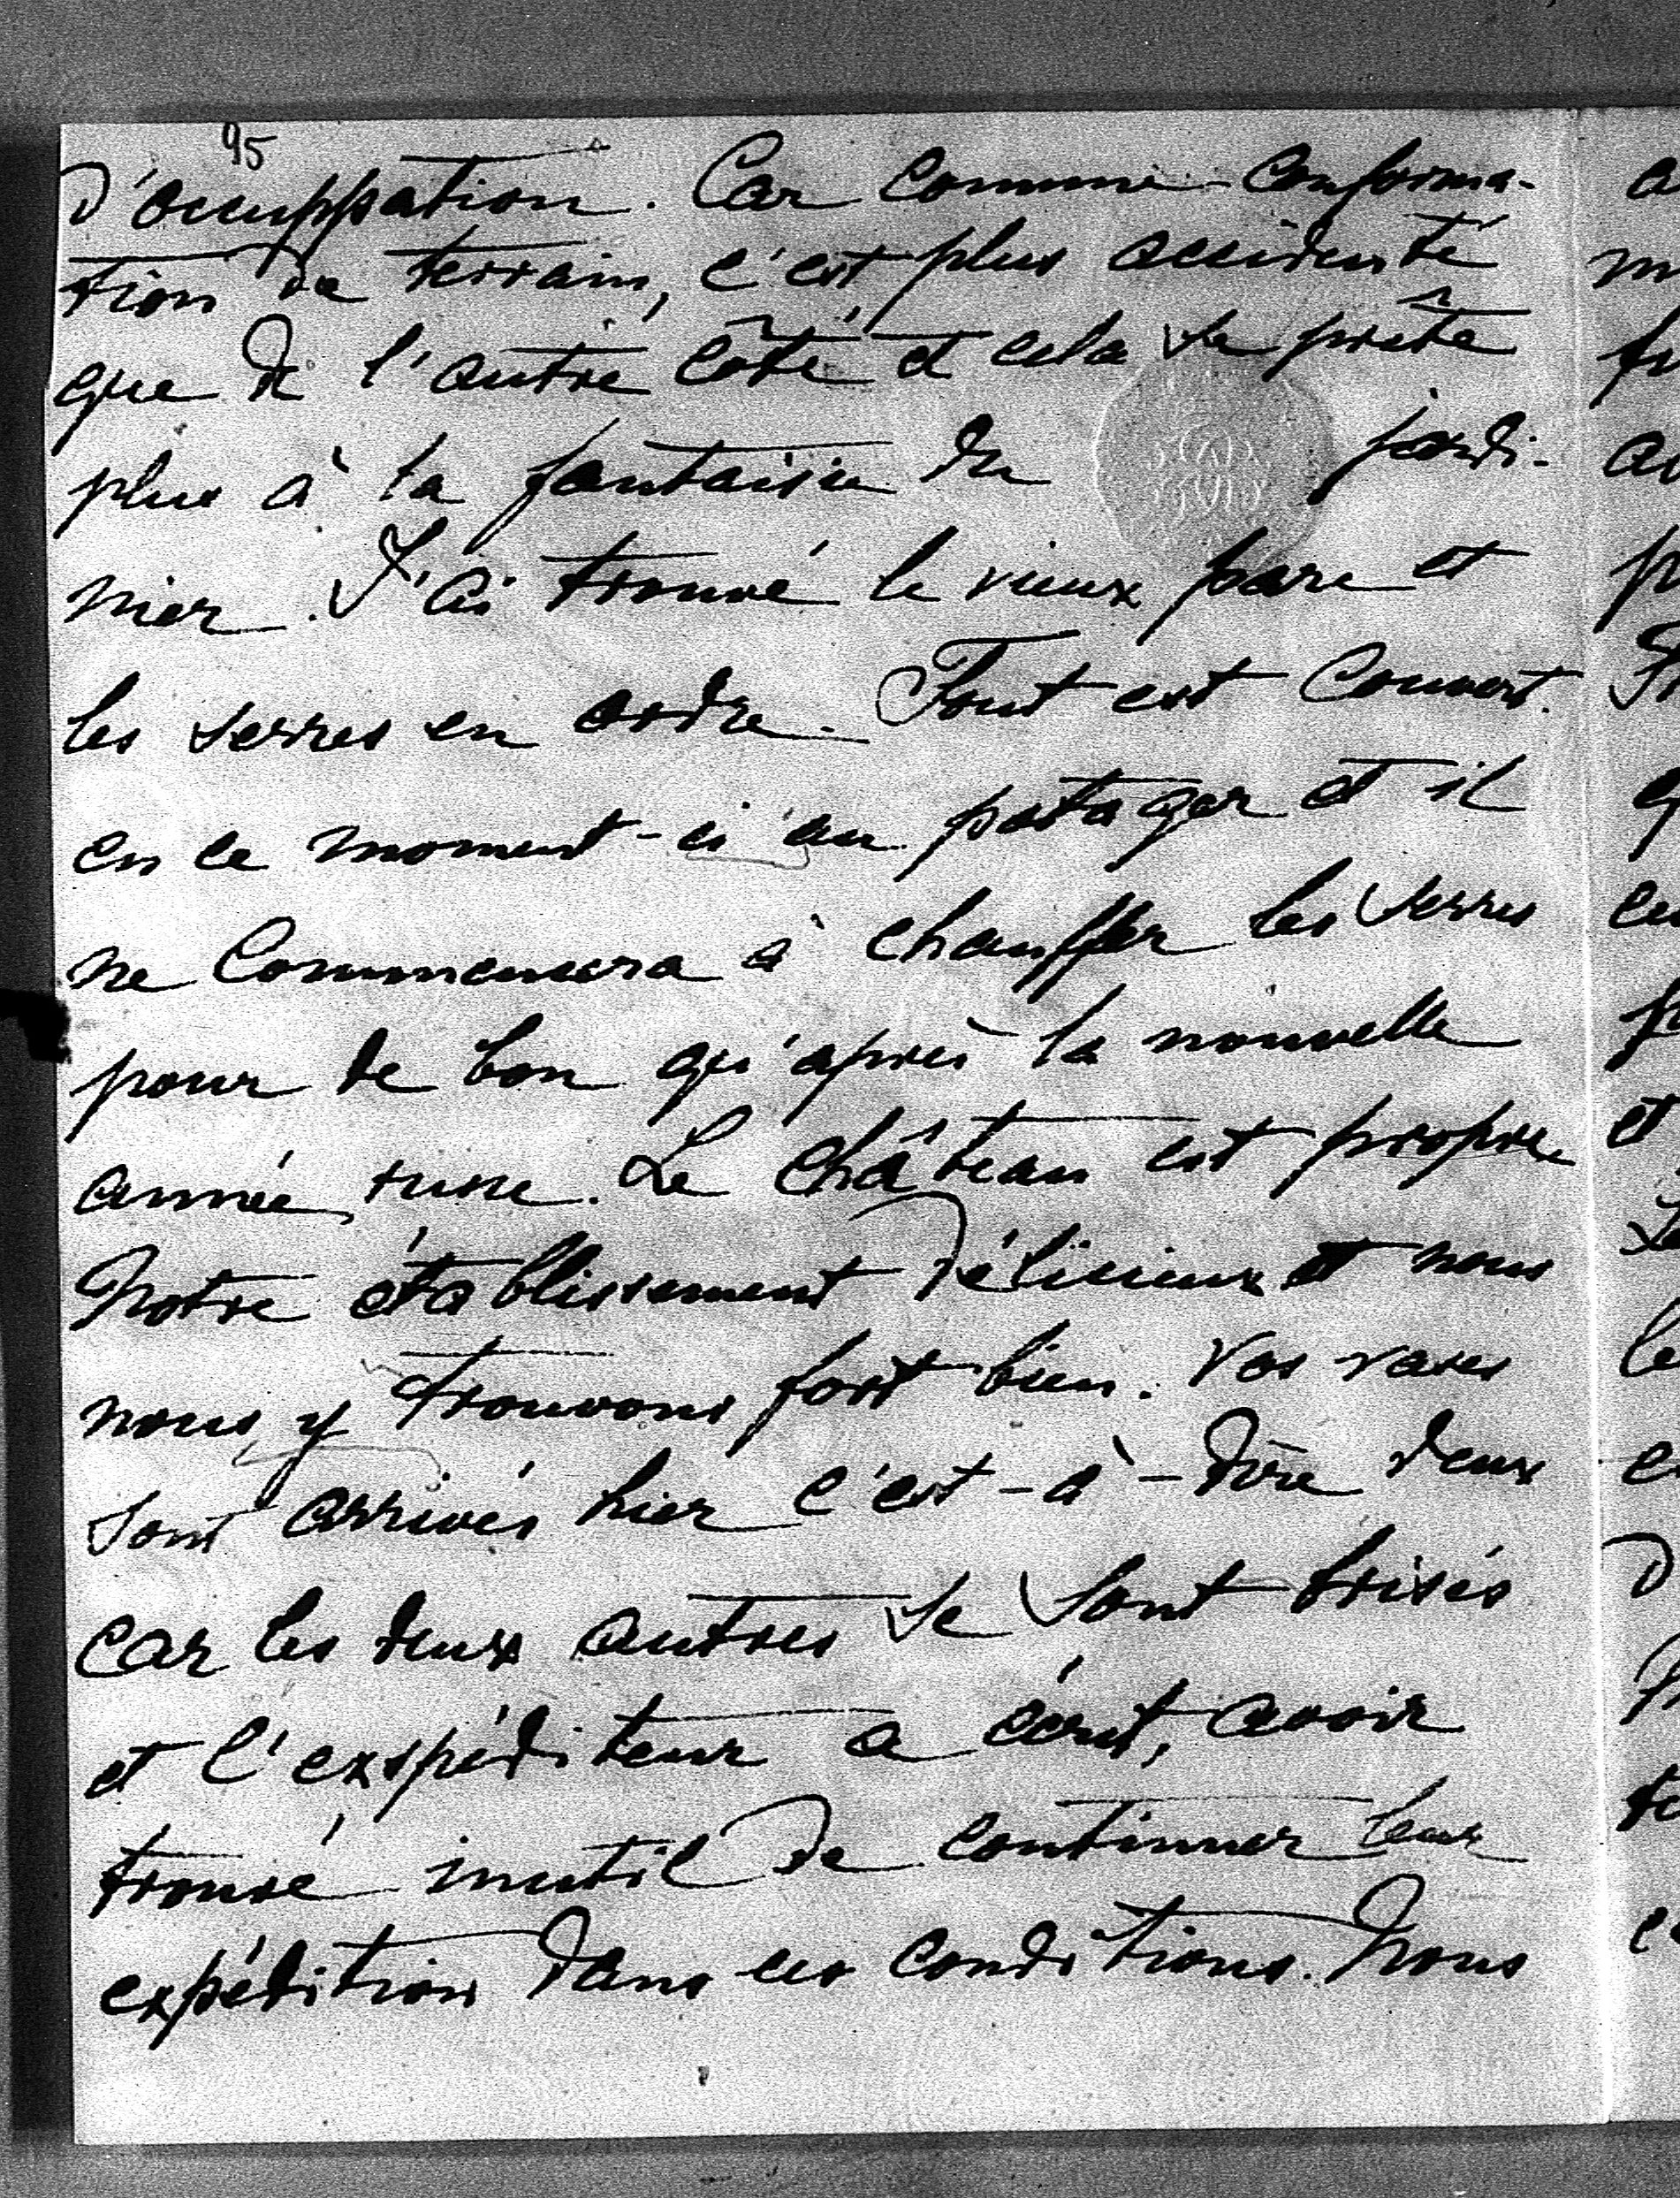 95
d'occuppation. Car comme conforma-
tion de terrain, c'est plus accidenté
que de l'autre côté et cela se prête
plus à la fantaisie du jardi-
nier. J'ai trouvé le vieux parc et
les serres en ordre. Tout est couvert
en ce moment-ci au potager et il
ne commencera à chauffer les serres
pour de bon qu'après la nouvelle
année russe. Le château est propre
Notre établissement délicieux et nous
nous y trouvons fort bien. Vos vases
sont arrivés hier c'est-à-dire deux
car les deux autres se sont brisés
et l'expéditeur a écrit, avoir
trouvé inutil de continuer leur
expédition dans ces conditions. Nous